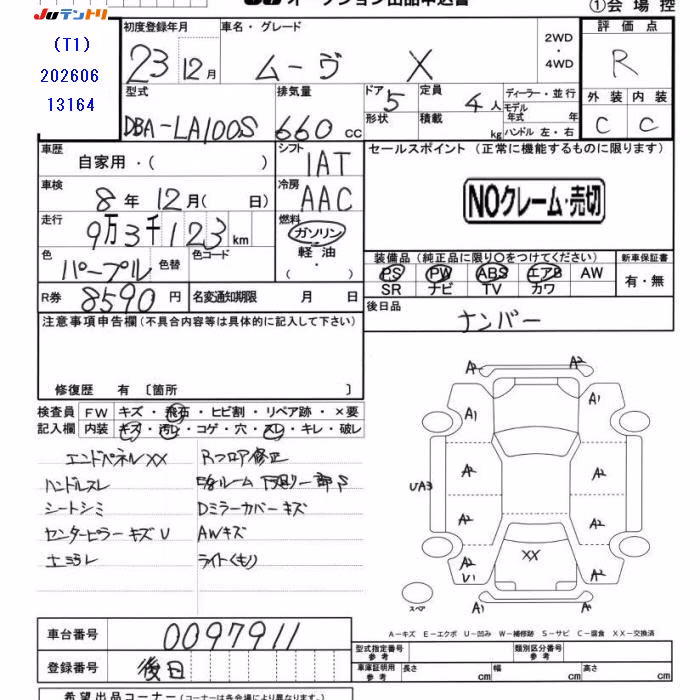 JUテントリ
(T1)
202606
13164
①会場控
初度登録年月 車名・グレード 2WD・4WD 評価点
23 12月 ムーヴ X R
型式 排気量 ドア 定員 ディーラー・並行 外装 内装
DBA-LA100S 660cc 5 4人 モデル年式 年 C C
形状 積載 kg ハンドル 左・右
車歴 自家用・( ) シフト 1AT
セールスポイント (正常に機能するものに限ります)
車検 8年12月( 日) 冷房 AAC
NOクレーム・売切
走行 9万3千123km 燃料 ガソリン 軽油
色 パープル 色替 色コード
装備品 (純正品に限り○をつけてください) 新車保証書
PS PW ABS エアB AW 有・無
SR ナビ TV カワ
R券 8590円 名変通知期限 月 日
後日品 ナンバー
注意事項申告欄 (不具合内容等は具体的に記入して下さい)
修復歴 有 〔箇所 〕
検査員 FW キズ・飛石・ヒビ割・リペア跡・×要
記入欄 内装 キズ・汚レ・コゲ・穴・スレ・キレ・破レ
エンドパネルXX Rフロア修正
ハンドルスレ
シートシミ Dミラーカバーキズ
センターピラーキズU AWキズ
ライトくもり
A2 A2
A1 A1
UA3 A2 A2
A2 A2
A2 U1 XX A2
A2 A2
スペア
A-キズ E-エクボ U-凹み W-補修跡 S-サビ C-腐食 XX-交換済
車台番号 0097911
型式指定番号 参考 類別区分番号 参考
登録番号 後日
車庫証明用 参考 長さ cm 幅 cm 高さ cm
希望出品コーナー (コーナーは各会場により異なります。)